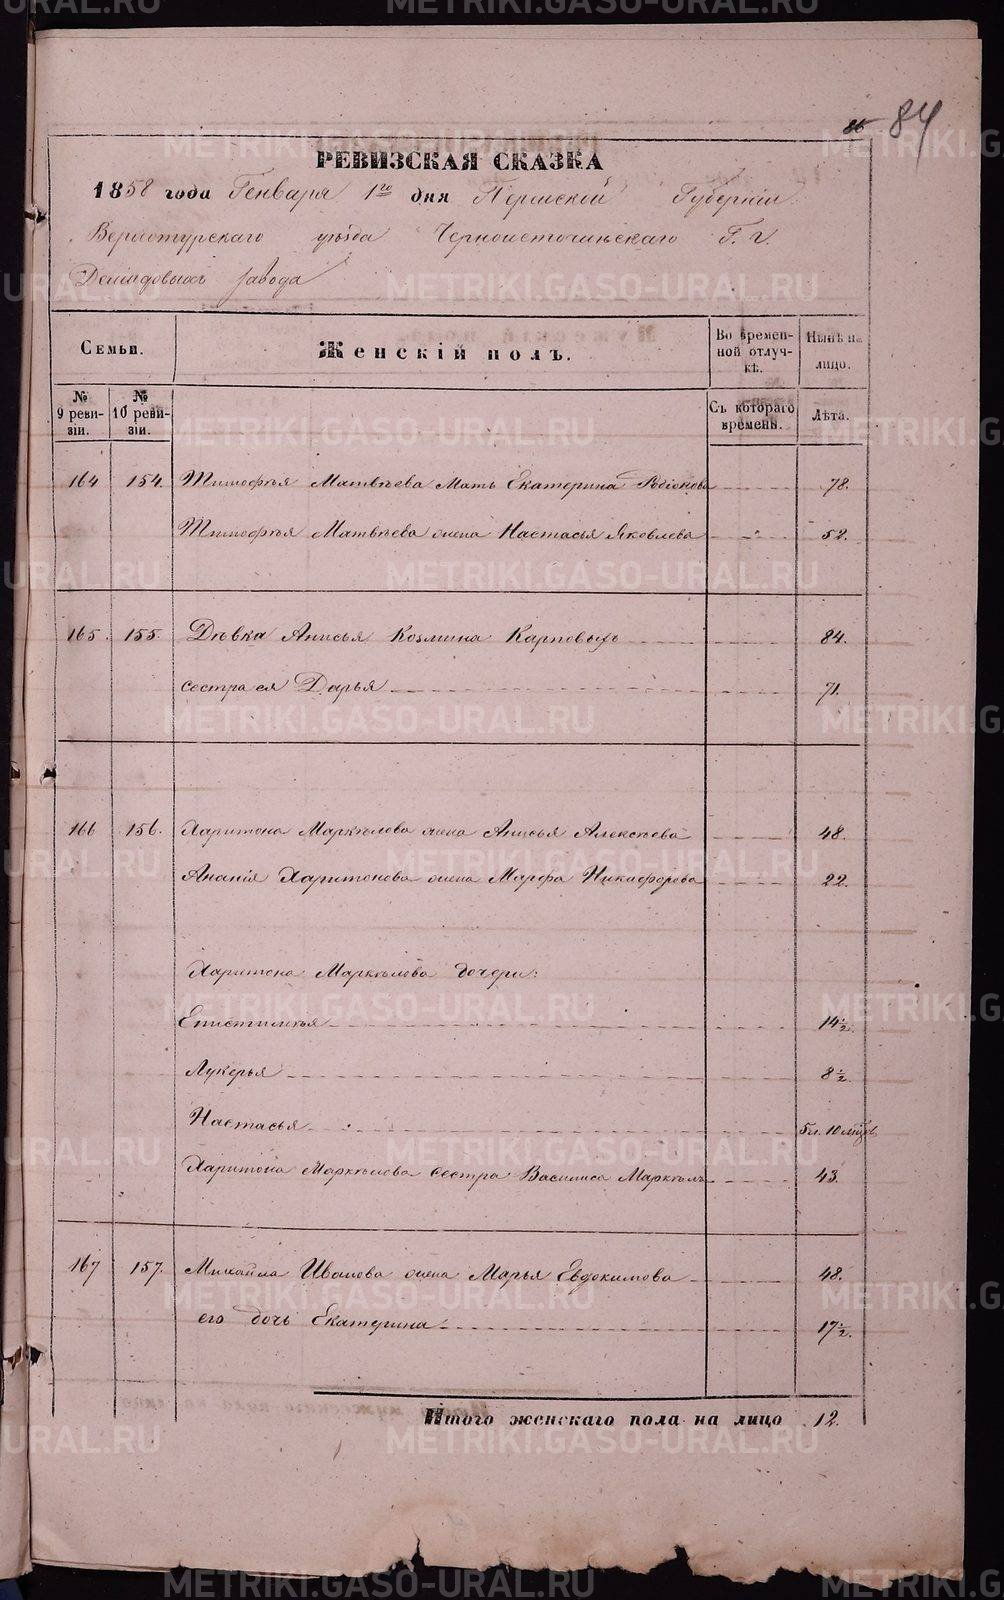 86 84
РЕВИЗСКАЯ СКАЗКА
1858 года Генваря 1го дня Пермской Губернiи
Верхотурскаго уѣзда Черноисточинскаго Г. г.
Демидовыхъ завода
Семьи.
Женскiй полъ.
Во времен-
ной отлуч-
кѣ.
Нынѣ на
лицо.
№
9 реви-
зiи.
№
10 реви-
зiи.
Съ котораго
времены.
Лѣта.
164 154. Тимофѣя Матвѣева Мать Екатерина Родiонова 78.
Тимофѣя Матвѣева жена Настасья Яковлева 52.
165. 155. Дѣвка Анисья Козмина Карповыхъ 84.
Сестра ея Дарья 71.
166 156. Харитона Маркѣлова жена Анисья Алексѣева 48.
Ананiя Харитонова жена Марфа Никифорова 22.
Харитона Маркѣлова дочери:
Епистимья 14 ½
Лукерья 8 ½
Настасья 5 л. 10 мѣс.
Харитона Маркѣлова Сестра Василиса Маркѣл. 43.
167 157. Михайла Иванова жена Марья Евдокимова 48.
его дочь Екатерина 17 ½.
Итого женскаго пола на лицо 12.
METRIKI.GASO-URAL.RU